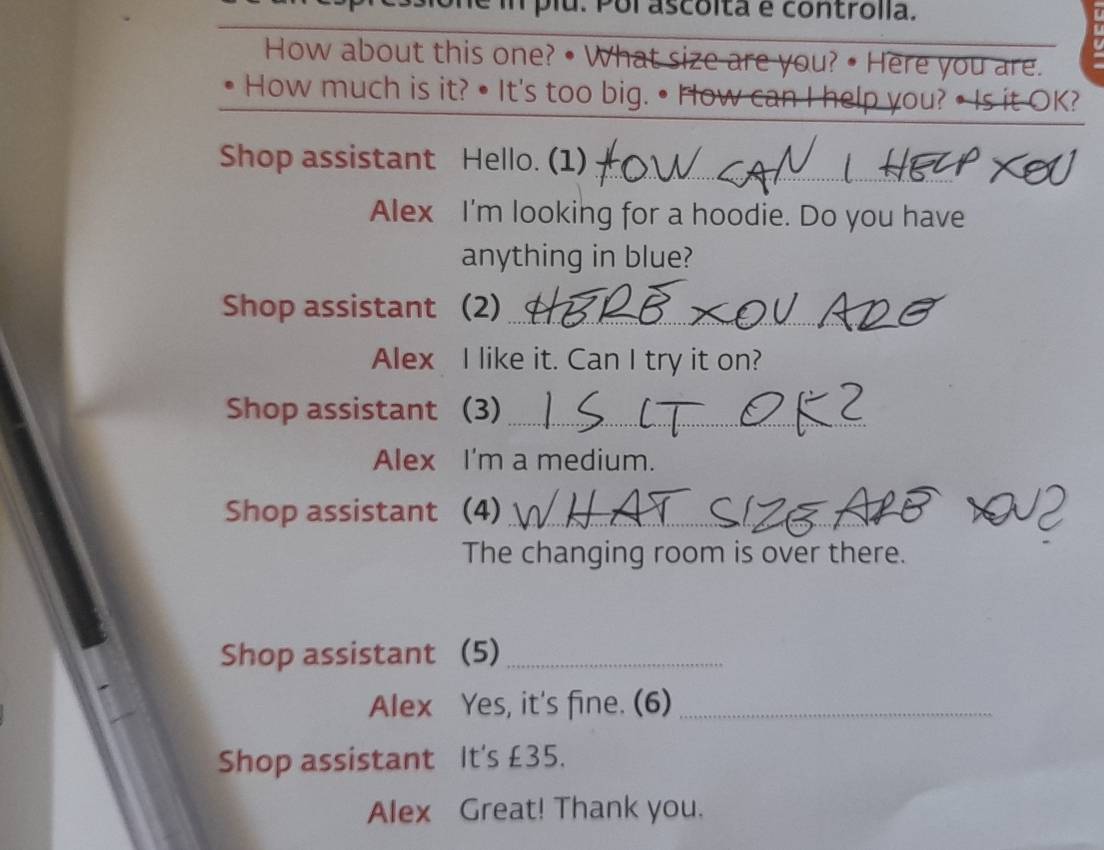 espressione in più. Poi ascolta e controlla.
How about this one? • What size are you? • Here you are.
• How much is it? • It's too big. • How can I help you? • Is it OK?
Shop assistant Hello. (1) HOW CAN I HELP YOU
Alex I'm looking for a hoodie. Do you have
anything in blue?
Shop assistant (2) HERE YOU ARE
Alex I like it. Can I try it on?
Shop assistant (3) IS IT OK?
Alex I'm a medium.
Shop assistant (4) WHAT SIZE ARE YOU?
The changing room is over there.
Shop assistant (5)
Alex Yes, it's fine. (6)
Shop assistant It's £35.
Alex Great! Thank you.